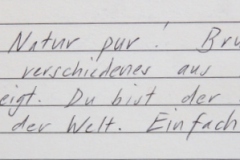 Natur pur! Bru
verschiedenes aus
eigt. Du bist der
der Welt. Einfach